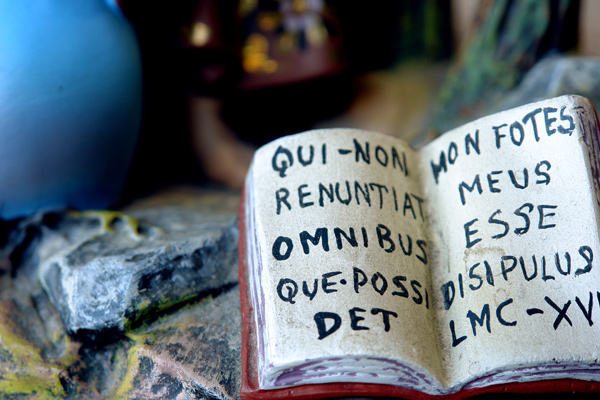 QUI-NON
RENUNTIAT
OMNIBUS
QUE·POSSI
DET
MON FOTES
MEUS
ESSE
DISIPULUS
LMC-XVI